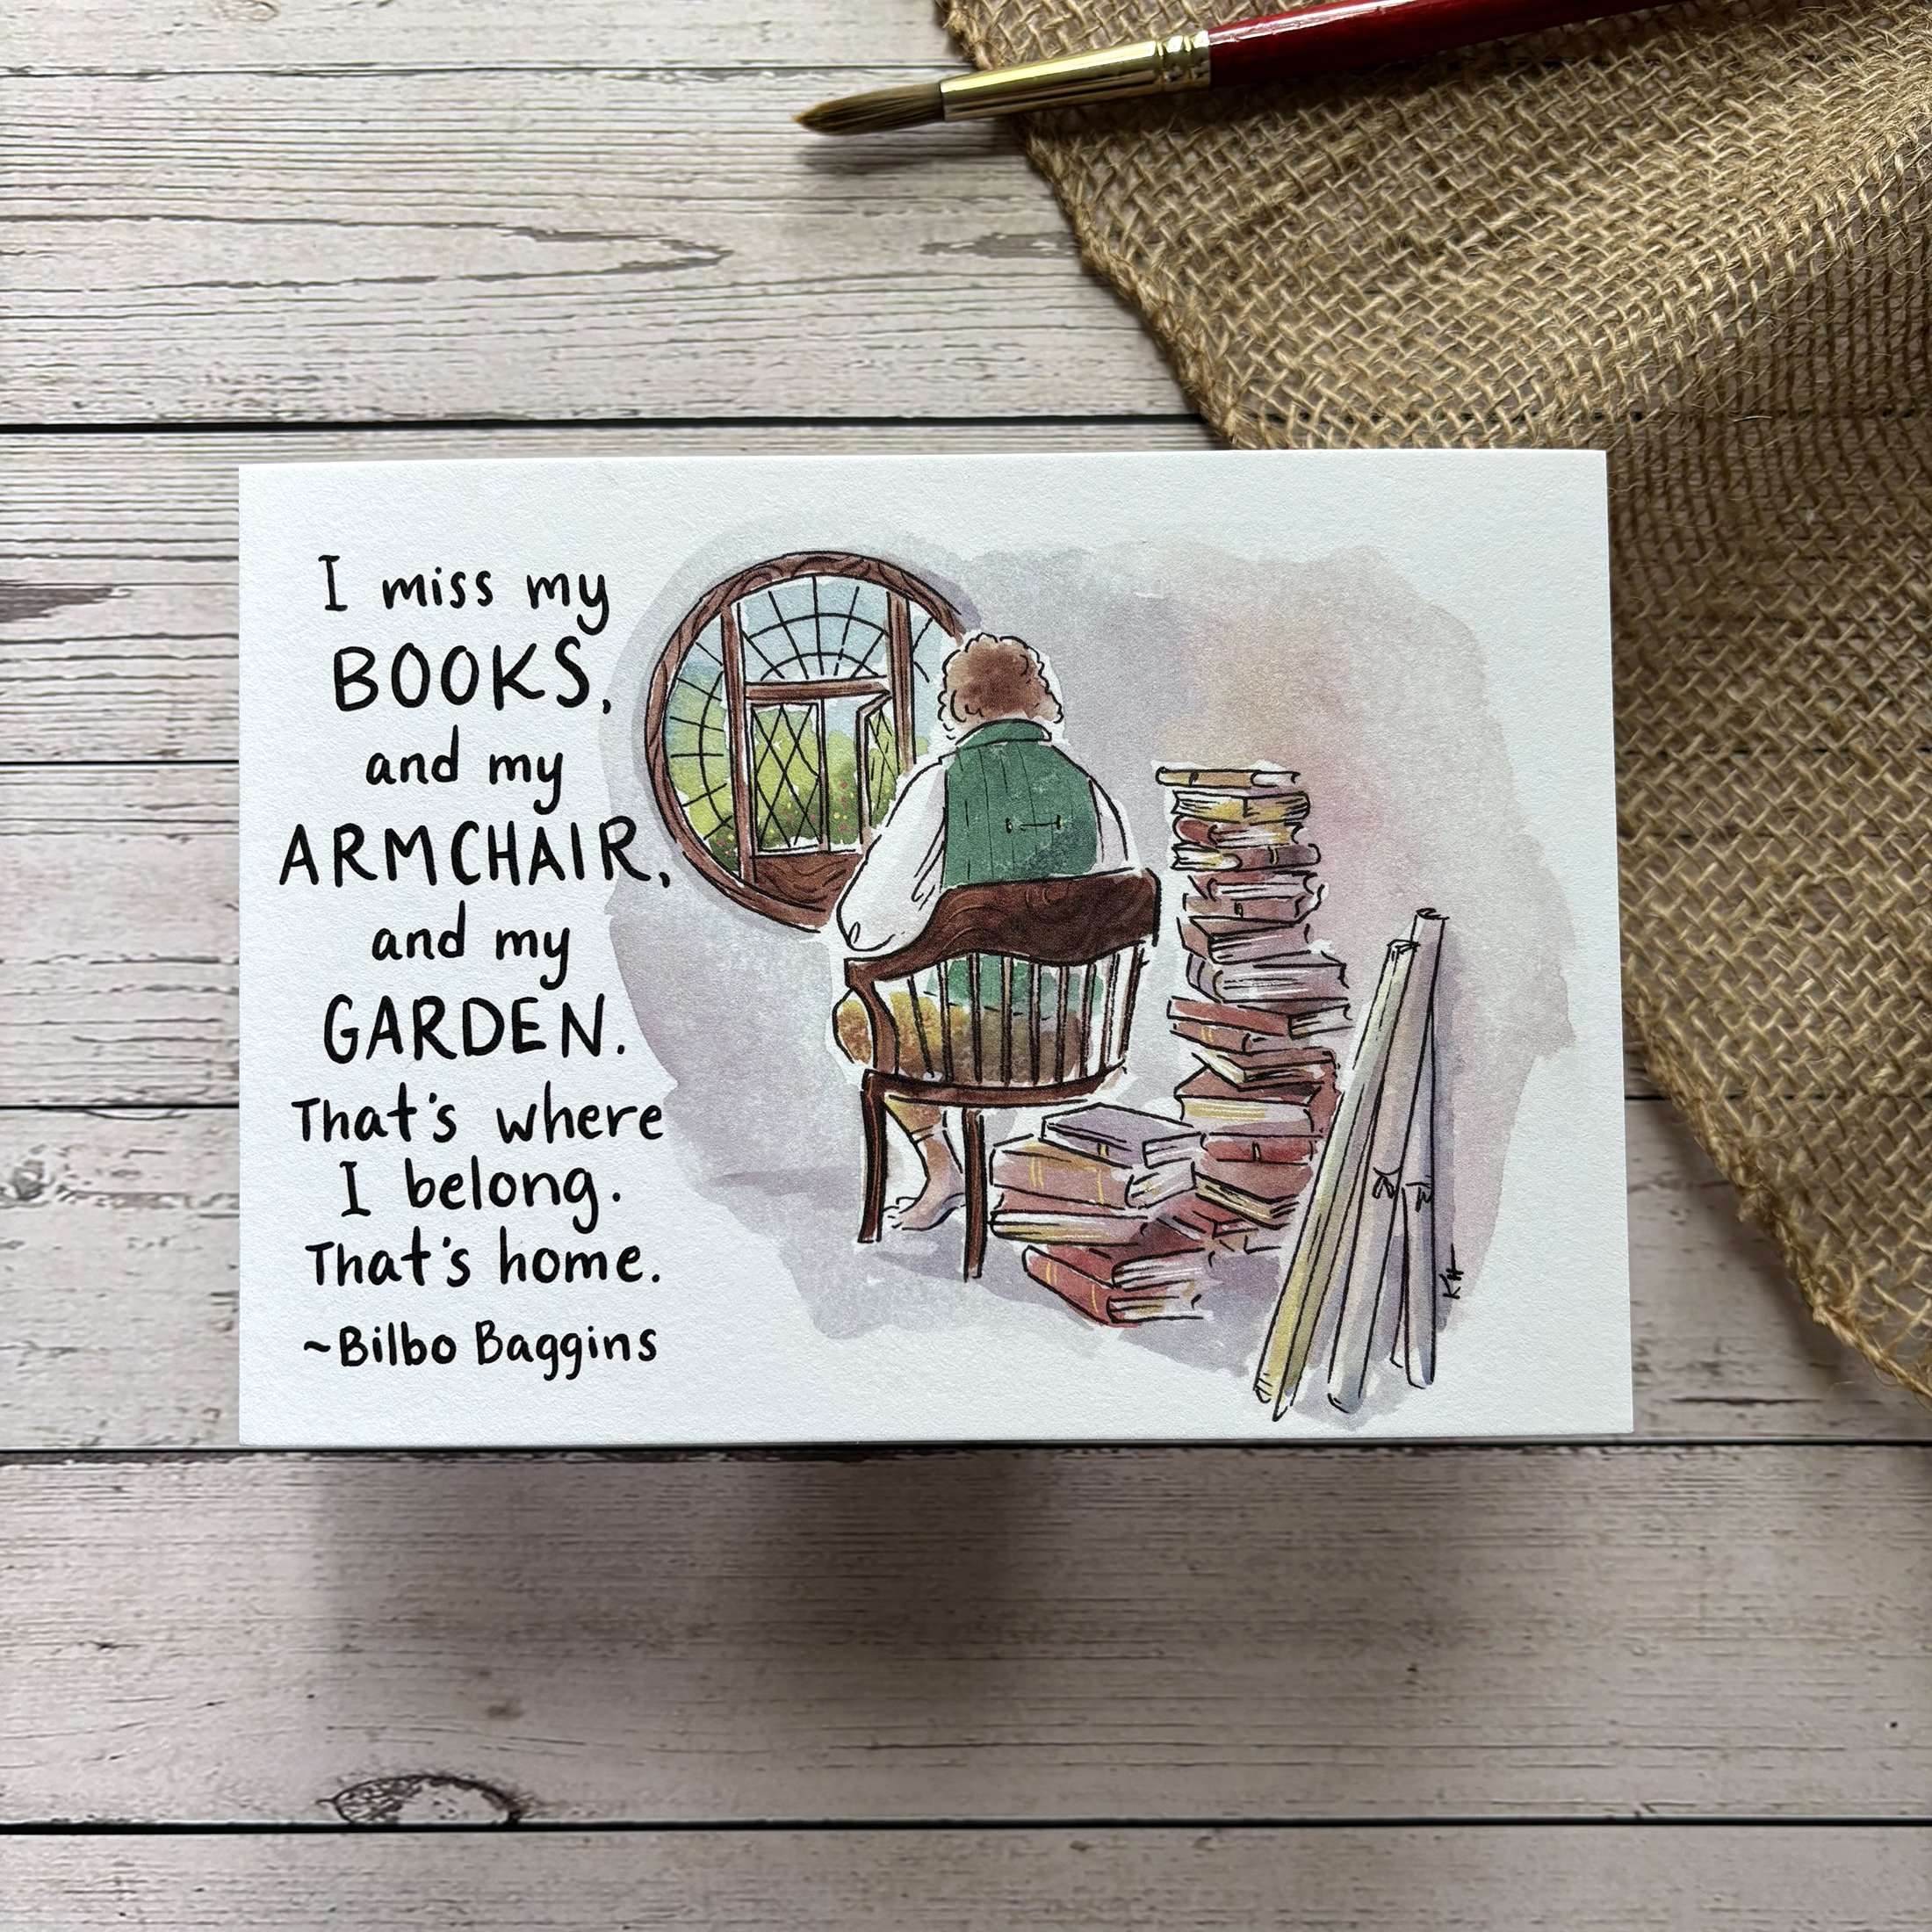 I miss my
BOOKS,
and my
ARMCHAIR,
and my
GARDEN.
That's where
I belong.
That's home.
~Bilbo Baggins
KH